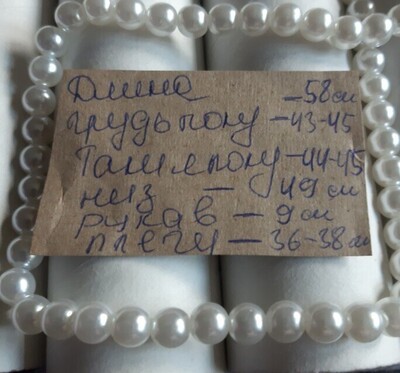 Длина -58см
грудь полу -43-45
Талия полу -44-45
низ - 49 см
рукав - 9 см
плечи - 36-38 см